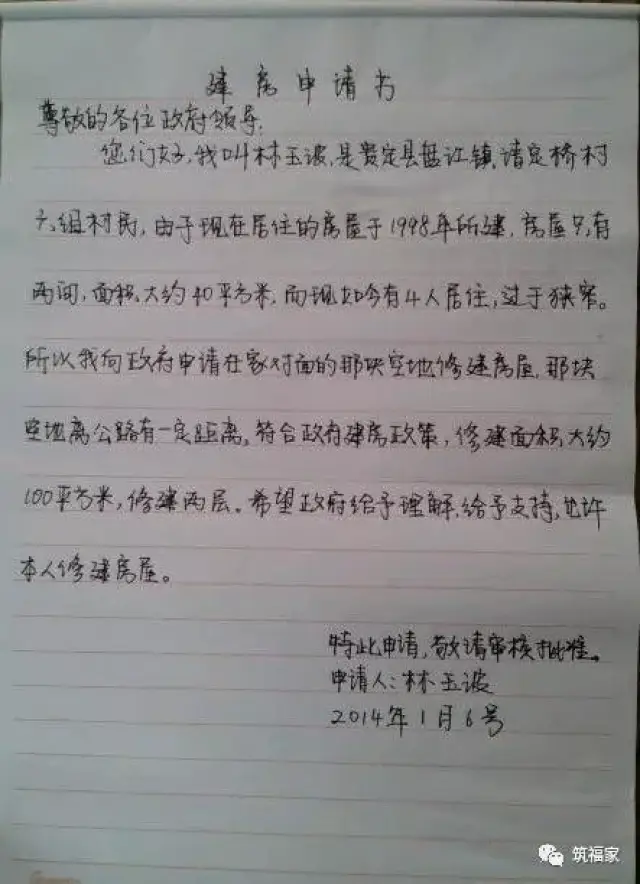 建房申请书
尊敬的各位政府领导:
您们好,我叫林玉波,是贵定县盘江镇清定桥村
六组村民,由于现在居住的房屋于1998年所建,房屋只有
两间,面积大约40平方米,而现如今有4人居住,过于狭窄。
所以我向政府申请在家对面的那块空地修建房屋,那块
空地离公路有一定距离,符合政府建房政策,修建面积大约
100平方米,修建两层。希望政府给予理解,给予支持,允许
本人修建房屋。
特此申请,敬请审核批准。
申请人:林玉波
2014年1月6号
筑福家